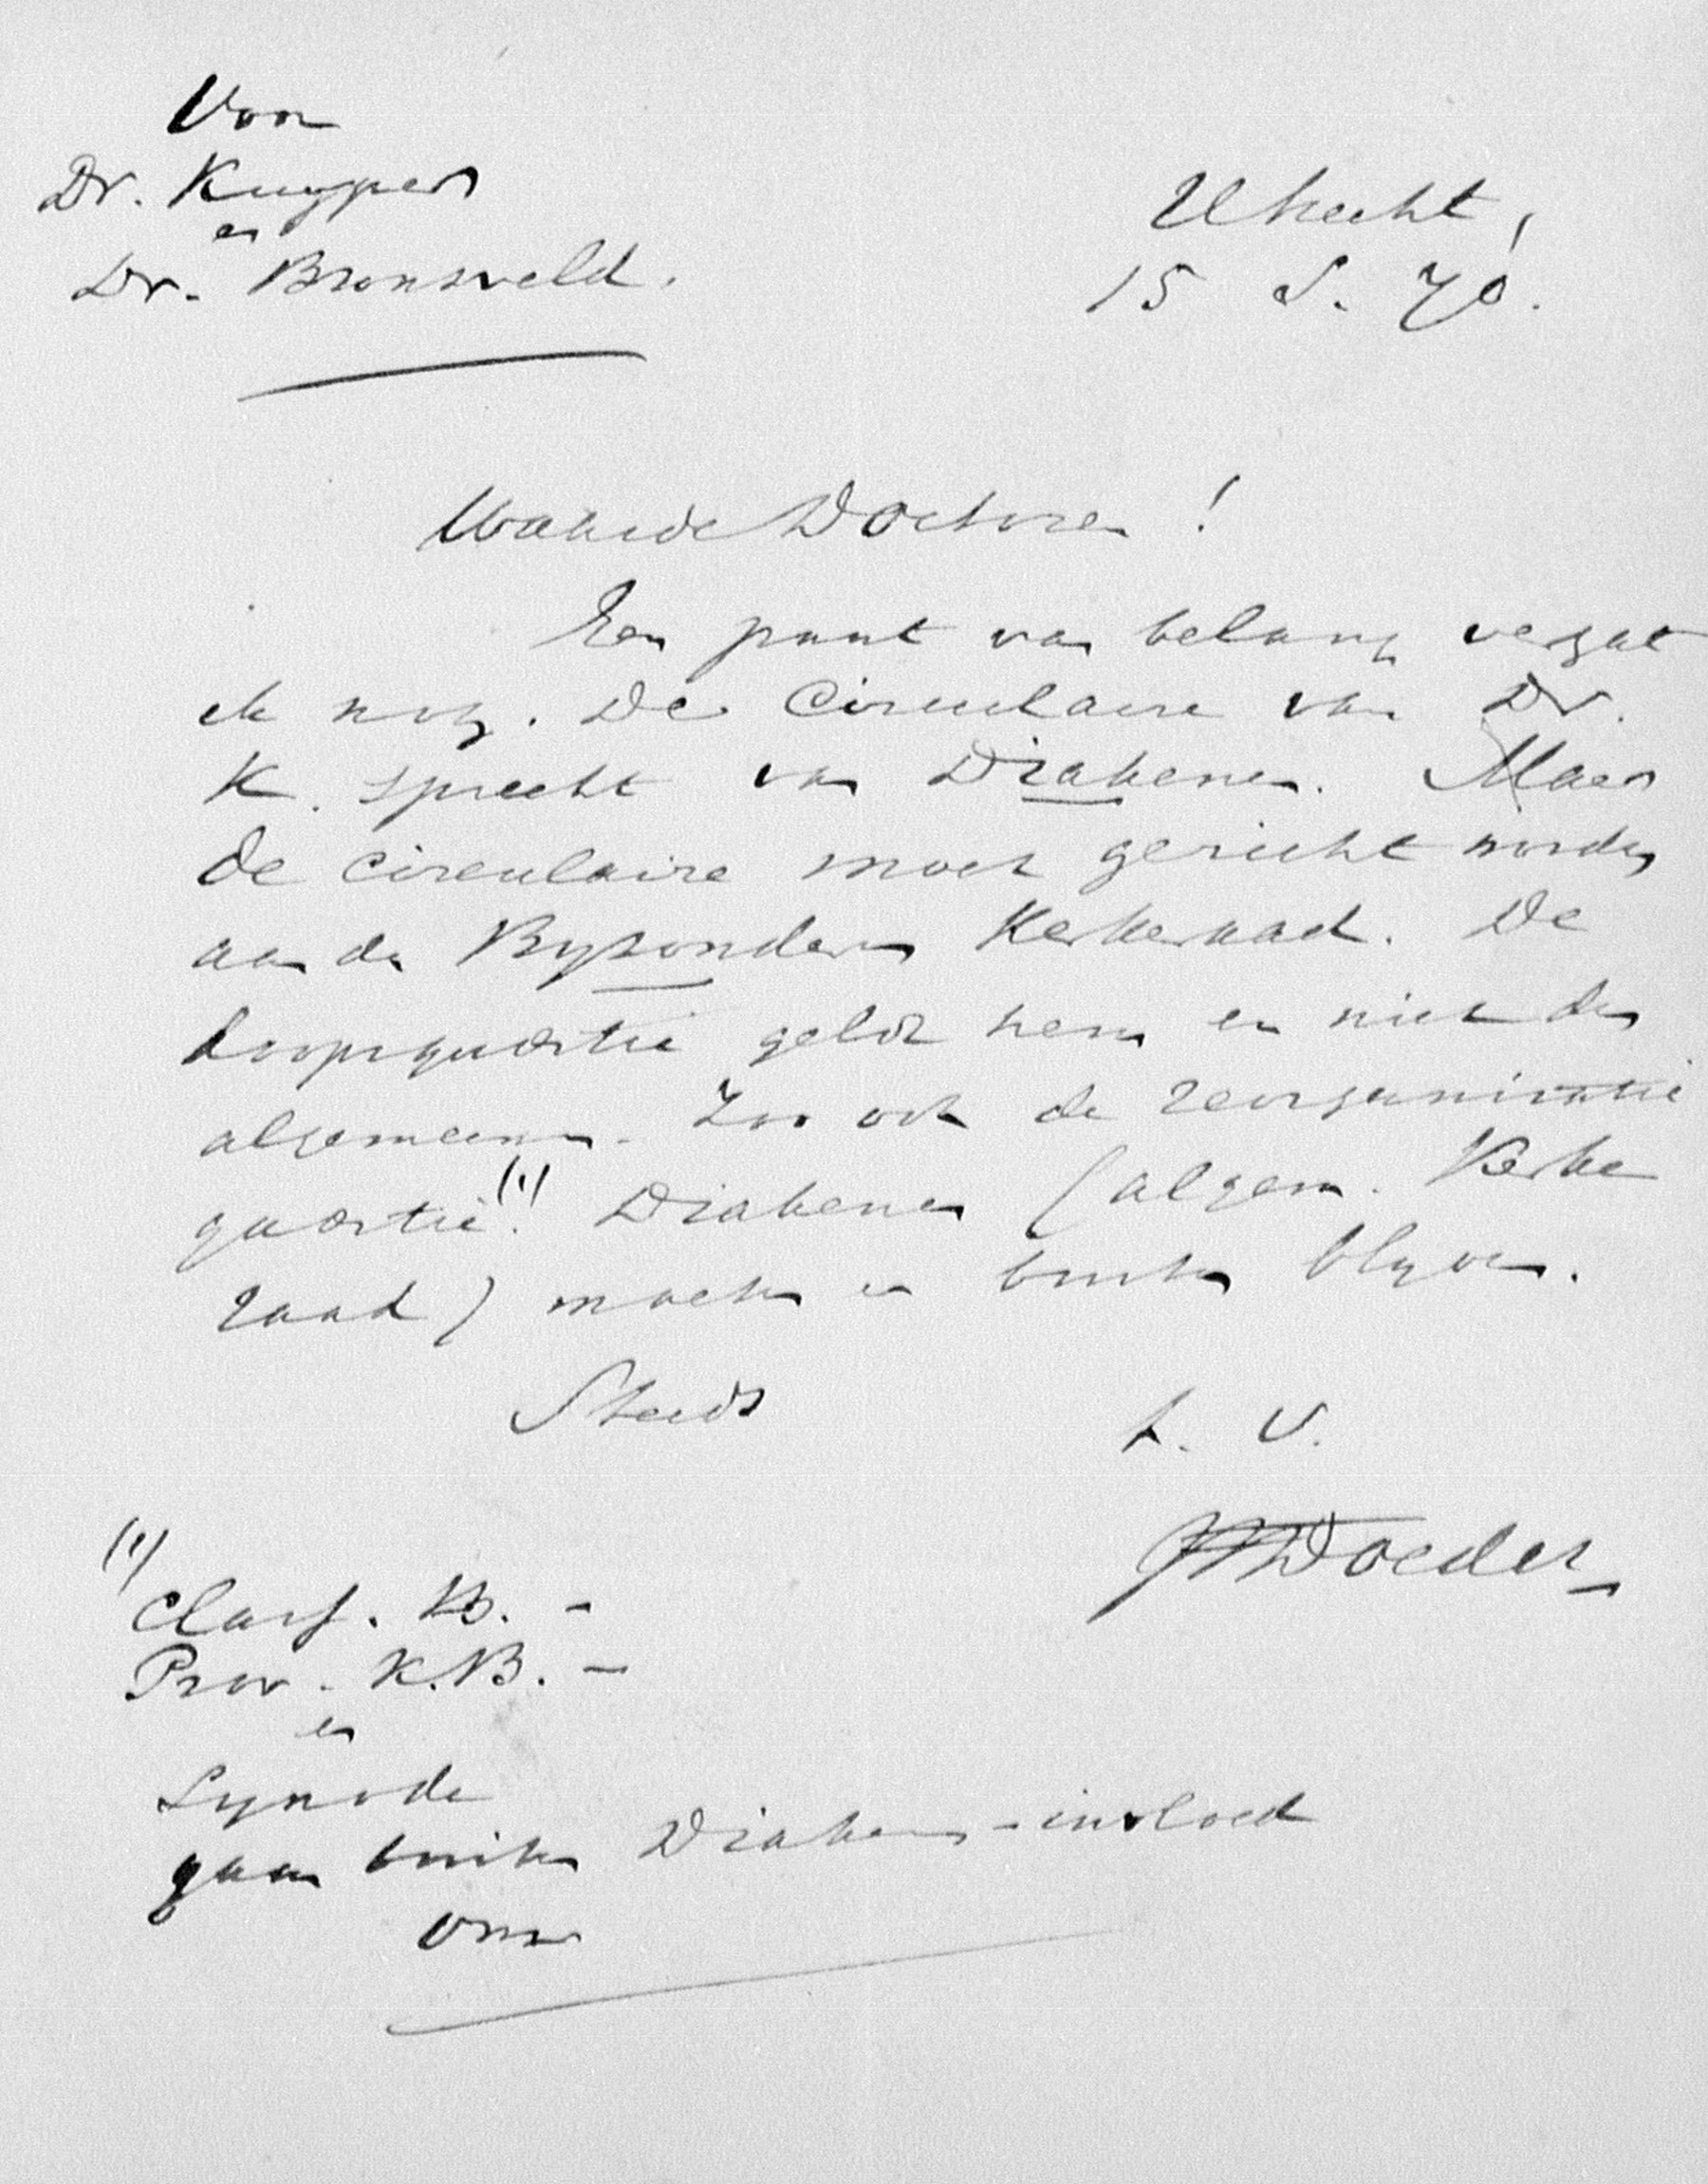 Voor
Dr. Kuyper
en
Dr. Bronsveld.
Utrecht,
15 S. 70.
Waarde Doctoren!
Een punt van belang vergat
ik nog. De Circulaire van Dr.
K. spreekt van Diakenen. Maar
de circulaire moet gericht worden
aan de Byzonderen Kerkeraad. De
doopquaestie geldt hem en niet den
algemeenen. Zoo ook de reorganisatie
quaestie (1). Diakenen (algem. Kerke
raad) moeten er buiten blyven.
Steeds
t. t.
JIDoedes
(1)
Class. B. -
Prov. K.B. -
en
Synode
gaan buiten Diakenen-invloed
om